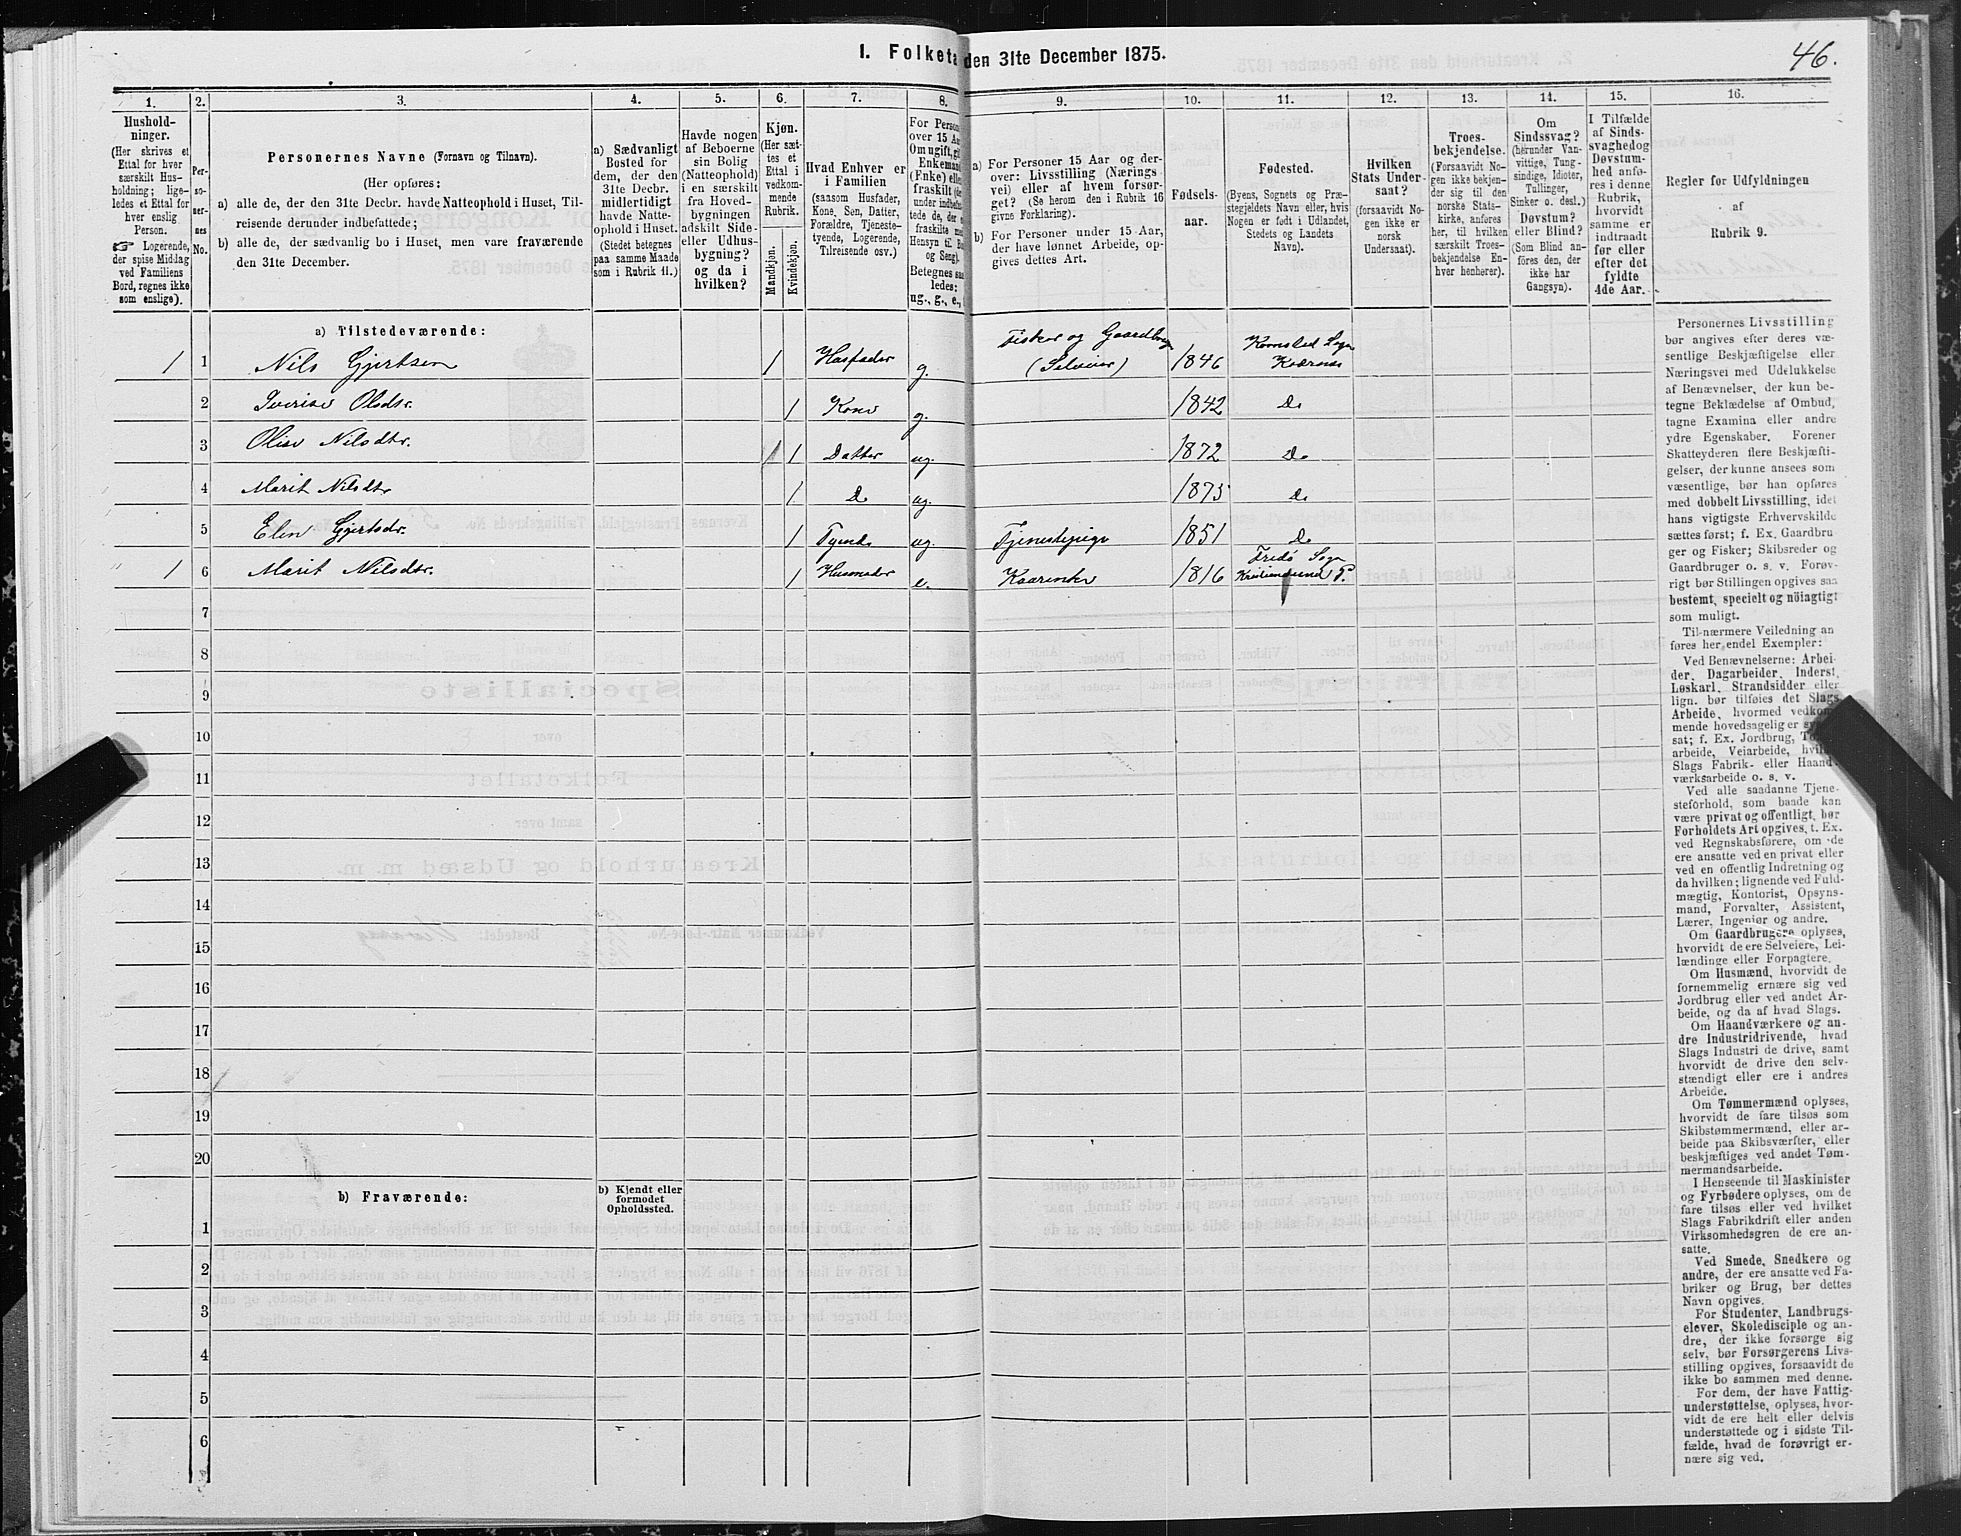 1. Folketa den 31te December 1875.
46.
1. 2. 3. 4. 5. 6. 7. 8. 9. 10. 11. 12. 13. 14. 15. 16.
Hushold-
ninger.
(Her skrives et
Ettal for hver
særskilt Hus-
holdning; lige-
ledes et Ettal for
hver enslig
Person.
☞ Logerende,
der spise Middag
ved Familiens
Bord, regnes ikke
som enslige).
Per-
so-
ner-
nes
No.
Personernes Navne (Fornavn og Tilnavn).
(Her opføres:
a) alle de, der den 31te Decbr. havde Natteophold i Huset, Til-
reisende derunder indbefattede;
b) alle de, der sædvanlig bo i Huset, men vare fraværende
den 31te December.
a) Sædvanligt
Bosted for
dem, der den
31te Decbr.
midlertidigt
havde Natte-
ophold i Huset.
(Stedet betegnes
paa samme Maade
som i Rubrik 11.)
Havde nogen
af Beboerne
sin Bolig
(Natteophold)
i en særskilt
fra Hoved-
bygningen
adskilt Side-
eller Udhus-
bygning?
og da i
hvilken?
Kjøn.
(Her sæt-
tes et
Ettal i
vedkom-
mende
Rubrik.
Mandkjøn.
Kvindekjøn.
Hvad Enhver er
i Familien
(saasom Husfader,
Kone, Søn, Datter,
Forældre, Tjeneste-
tyende, Logerende,
Tilreisende osv.)
For Person
over 15 Aa
Om ugift, gi
Enkemand
(Enke) elle
fraskilt (de
under indbefat
tede de, der
fraskilte me
Hensyn til Bo
og Seng).
Betegnes saa
ledes:
ug., g., e.,
a) For Personer 15 Aar og der-
over: Livsstilling (Nærings
vei) eller af hvem forsør-
get? (Se herom den i Rubrik 16
givne Forklaring).
b) For Personer under 15 Aar,
der have lønnet Arbeide, op-
gives dettes Art.
Fødsels-
aar.
Fødested.
(Byens, Sognets og Præ-
stegjeldets Navn eller, hvis
Nogen er født i Udlandet,
Stedets og Landets
Navn).
Hvilken
Stats Under-
saat?
(forsaavidt No-
gen ikke er
norsk
Undersaat).
Troes-
bekjendelse.
(Forsaavidt No-
gen ikke bekjen-
der sig til den
norske Stats-
kirke, anføres
her, til hvilken
særskilt Troes-
bekjendelse En-
hver henhører).
Om
Sindssvag?
(herunder Van-
vittige, Tung-
sindige, Idioter,
Tullinger,
Sinker o. desl.)
Døvstum?
eller Blind?
(Som Blind an-
føres den, der
ikke har
Gangsyn).
I Tilfælde
af Sinds-
svaghed og
Døvstum-
hed anfø-
res i denne
Rubrik,
hvorvidt
samme er
indtraadt
før eller
efter det
fyldte
4de Aar.
Regler for Udfyldningen
af
Rubrik 9.
a) Tilstedeværende:
1 1 Nils Gjertsen 1 Husfader g. Fisker og Gaardbruger (Selveier) 1846 Kornstad Sogn Kværnæs
2 Olsdtr. 1 Kone g. 1842 Do
3 Nilsdtr. 1 Datter ug. 1872 Do
4 Marit Nilsdtr 1 D ug. 1875 Do
5 Elen Gjertsdr. 1 Tyende ug. Tjenestepige 1851 Do
1 6 Marit Nilsdtr. 1 Husmoder e. 1816 Fredø Sogn P.
7
8
9
10
11
12
13
14
15
16
17
18
19
20
b) Fraværende:
b) Kjendt eller
formodet
Opholdssted.
1
2
3
4
5
6
Personernes Livsstilling
bør angives efter deres væ-
sentlige Beskjæftigelse eller
Næringsvei med Udelukkelse
af Benævnelser, der kun be-
tegne Beklædelse af Ombud,
tagne Examina eller andre
ydre Egenskaber. Forener
Skatteyderen flere Beskjæfti-
gelser, der kunne ansees som
væsentlige, bør han opføres
med dobbelt Livsstilling, idet
hans vigtigste Erhvervskilde
sættes først; f. Ex. Gaardbru
ger og Fisker; Skibsreder og
Gaardbruger o. s. v. Forøv-
rigt bør Stillingen opgives saa
bestemt, specielt og nöiagtigt
som muligt.
Til nærmere Veiledning an
føres her endel Exempler:
Ved Benævnelserne: Arbei-
der, Dagarbeider, Inderst,
Løskarl, Strandsidder eller
lign. bør tilføies det Slags
Arbeide, hvormed vedkom-
mende hovedsagelig er
sat; f. Ex. Jordbrug,
arbeide, Veiarbeide,
Slags Fabrik- eller Haand-
værksarbeide o. s. v.
Ved alle saadanne Tjene-
steforhold, som baade kan
være privat og offentligt, bør
Forholdets Art opgives, t. Ex.
ved Regnskabsførere, om de
ere ansatte ved en privat eller
ved en offentlig Indretning og
da hvilken; lignende ved Fuld-
mægtig, Kontorist, Opsyns-
mand, Forvalter, Assistent,
Lærer, Ingeniør og andre.
Om Gaardbrugere oplyses,
hvorvidt de ere Selveiere, Lei-
lændinge eller Forpagtere.
Om Husmænd, hvorvidt de
fornemmelig ernære sig ved
Jordbrug eller ved andet Ar-
beide, og da af hvad Slags.
Om Haandværkere og an-
dre Industridrivende, hvad
Slags Industri de drive, samt
hvorvidt de drive den selv-
stændigt eller ere i andres
Arbeide.
Om Tømmermænd oplyses,
hvorvidt de fare tilsøs som
Skibstømmermænd, eller ar-
beide paa Skibsværfter, eller
beskjæftiges ved andet Tøm-
mermandsarbeide.
I Henseende til Maskinister
og Fyrbødere oplyses, om de
fare tilsøs eller ved hvilket
Slags Fabrikdrift eller anden
Virksomhedsgren de ere an-
satte.
Ved Smede, Snedkere og
andre, der ere ansatte ved Fa-
briker og Brug, bør dettes
Navn opgives.
For Studenter, Landbrugs-
elever, Skoledisciple og an-
dre, der ikke forsørge sig
selv, bør Forsørgerens Livs-
stilling opgives, forsaavidt de
ikke bo sammen med denne.
For dem, der have Fattig-
understøttelse, oplyses, hvor-
vidt de ere helt eller delvis
understøttede og i sidste Til-
fælde, hvad de forøvrigt er-
nære sig ved.